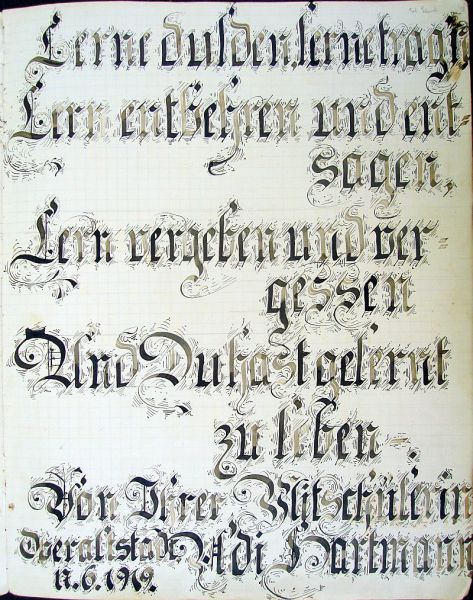 Lerne dulden, lerne tragen
Lern entbehren und ent-
sagen,
Lern vergeben und ver-
gessen
Und Du hast gelernt
zu liben -.
Von Ihrer Mitschülerin
Adi Hartmann
17.6.1919.